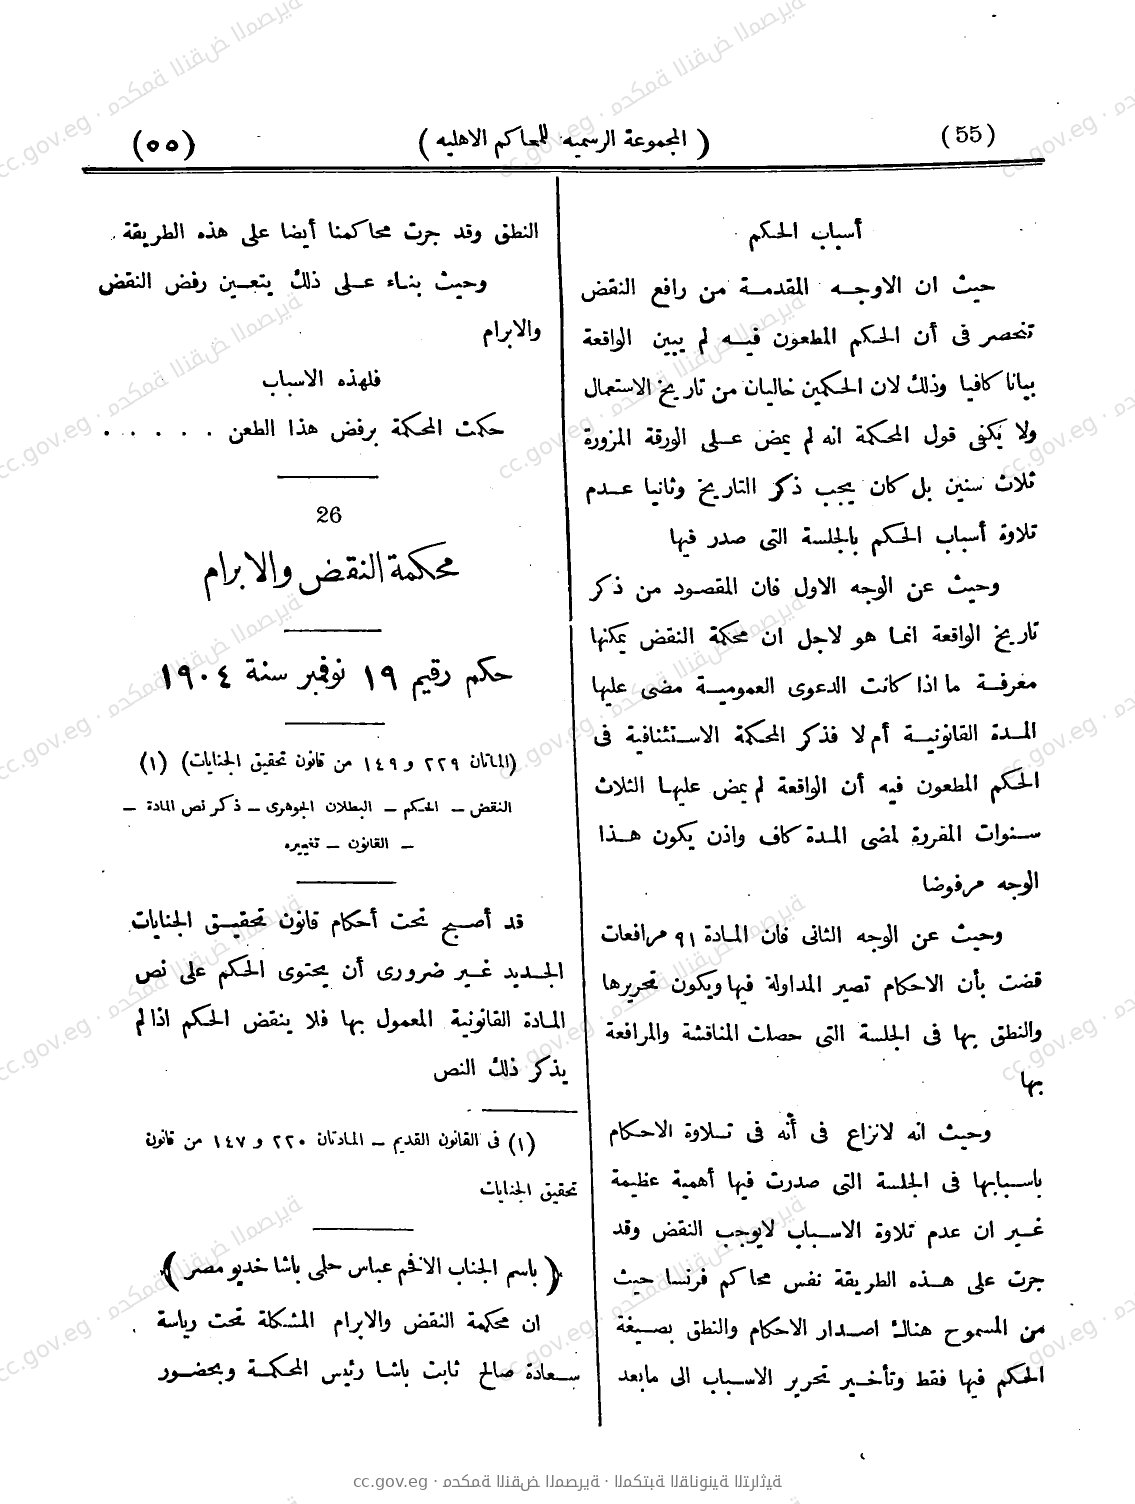 (55)
( المجموعة الرسميه للمحاكم الاهليه )
(٥٥)
أسباب الحكم
حيث ان الاوجه المقدمة من رافع النقض
تنحصر فى أن الحكم المطعون فيه لم يبين الواقعة
بيانا كافيا وذلك لان الحكمين خاليان من تاريخ الاستعمال
ولا يكفى قول المحكمة انه لم يمض على الورقة المزورة
ثلاث سنين بل كان يجب ذكر التاريخ وثانيا عدم
تلاوة أسباب الحكم بالجلسة التى صدر فيها
وحيث عن الوجه الاول فان المقصود من ذكر
تاريخ الواقعة انما هو لاجل ان محكمة النقض يمكنها
معرفة ما اذا كانت الدعوى العمومية مضى عليها
المدة القانونية أم لا فذكر المحكمة الاستئنافية فى
الحكم المطعون فيه أن الواقعة لم يمض عليها الثلاث
سنوات المقررة لمضى المدة كاف واذن يكون هذا
الوجه مرفوضا
وحيث عن الوجه الثانى فان المادة ٩١ مرافعات
قضت بأن الاحكام تصير المداولة فيها ويكون تحريرها
والنطق بها فى الجلسة التى حصلت المناقشة والمرافعة
بها
وحيث انه لانزاع فى أنه فى تلاوة الاحكام
باسبابها فى الجلسة التى صدرت فيها أهمية عظيمة
غير ان عدم تلاوة الاسباب لايوجب النقض وقد
جرت على هذه الطريقة نفس محاكم فرنسا حيث
من المسموح هناك اصدار الاحكام والنطق بصيغة
الحكم فيها فقط وتأخير تحرير الاسباب الى مابعد
النطق وقد جرت محاكمنا أيضا على هذه الطريقة
وحيث بناء على ذلك يتعين رفض النقض
والابرام
فلهذه الاسباب
حكمت المحكمة برفض هذا الطعن . . . . .
26
محكمة النقض والابرام
حكم رقيم ١٩ نوفمبر سنة ١٩٠٤
(المادتان ٢٢٩ و ١٤٩ من قانون تحقيق الجنايات) (١)
النقض – الحكم – البطلان الجوهرى – ذكر نص المادة –
– القانون – تغييره
قد أصبح تحت أحكام قانون تحقيق الجنايات
الجديد غير ضرورى أن يحتوى الحكم على نص
المادة القانونية المعمول بها فلا ينقض الحكم اذا لم
يذكر ذلك النص
(١) فى القانون القديم – المادتان ٢٢٠ و ١٤٧ من قانون
تحقيق الجنايات
( باسم الجناب الافخم عباس حلمى باشا خديو مصر )
ان محكمة النقض والابرام المشكلة تحت رياسة
سعادة صالح ثابت باشا رئيس المحكمة وبحضور
cc.gov.eg · محكمة النقض المصرية · المكتبة القانونية التراثية